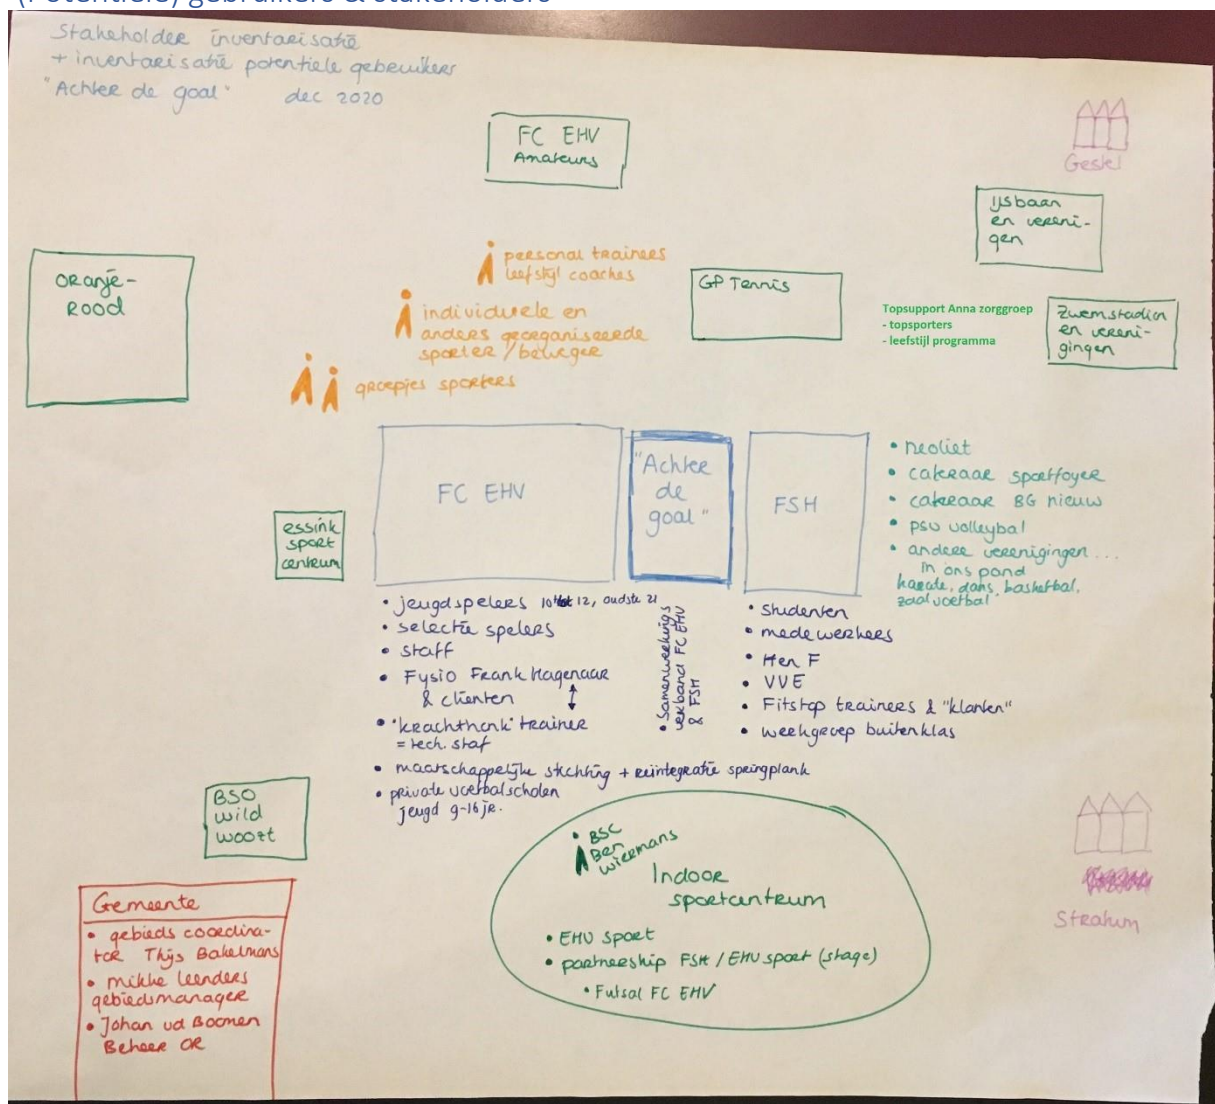 (Potentiële) gebruikers & stakeholders
Stakeholder inventarisatie
+ inventarisatie potentiele gebruikers
"Achter de goal" dec 2020
FC EHV
Amateurs
Gestel
IJsbaan
en vereni-
gen
Oranje-
Rood
personal trainers
leefstijl coaches
GP Tennis
individuele en
anders georganiseerde
sporter/beweger
Topsupport Anna zorggroep
- topsporters
- leefstijl programma
Zwemstadion
en vereni-
gingen
groepjes sporters
FC EHV
"Achter
de
goal"
FSH
• neoliet
• cateraar sportfoyer
• cateraar BG nieuw
• psv volleybal
• andere verenigingen...
in ons pand
karate, dans, basketbal,
zaalvoetbal
essink
sport
centrum
• jeugdspelers 10 tot 12, oudste 21
• selectie spelers
• staff
• Fysio Frank Hagenaar
& clienten
• 'krachthonk' trainer
= tech. staf
• maatschappelijke stichting + reïntegratie springplank
• private voetbalscholen
jeugd 9-16 jr.
• Samenwerkings
verband FC EHV
& FSH
• Studenten
• medewerkers
• Hen F
• VVE
• Fitstap trainers & "klanten"
• werkgroep buitenklas
BSO
wild
woozt
BSC
Ben
Wiermans
Indoor
sportcentrum
• EHV sport
• partnership FSH / EHV sport (stage)
• Futsal FC EHV
Stratum
Gemeente
• gebieds coordina-
tor Thijs Bakelmans
• mikke leenders
gebiedsmanager
• Johan vd Boomen
Beheer OR